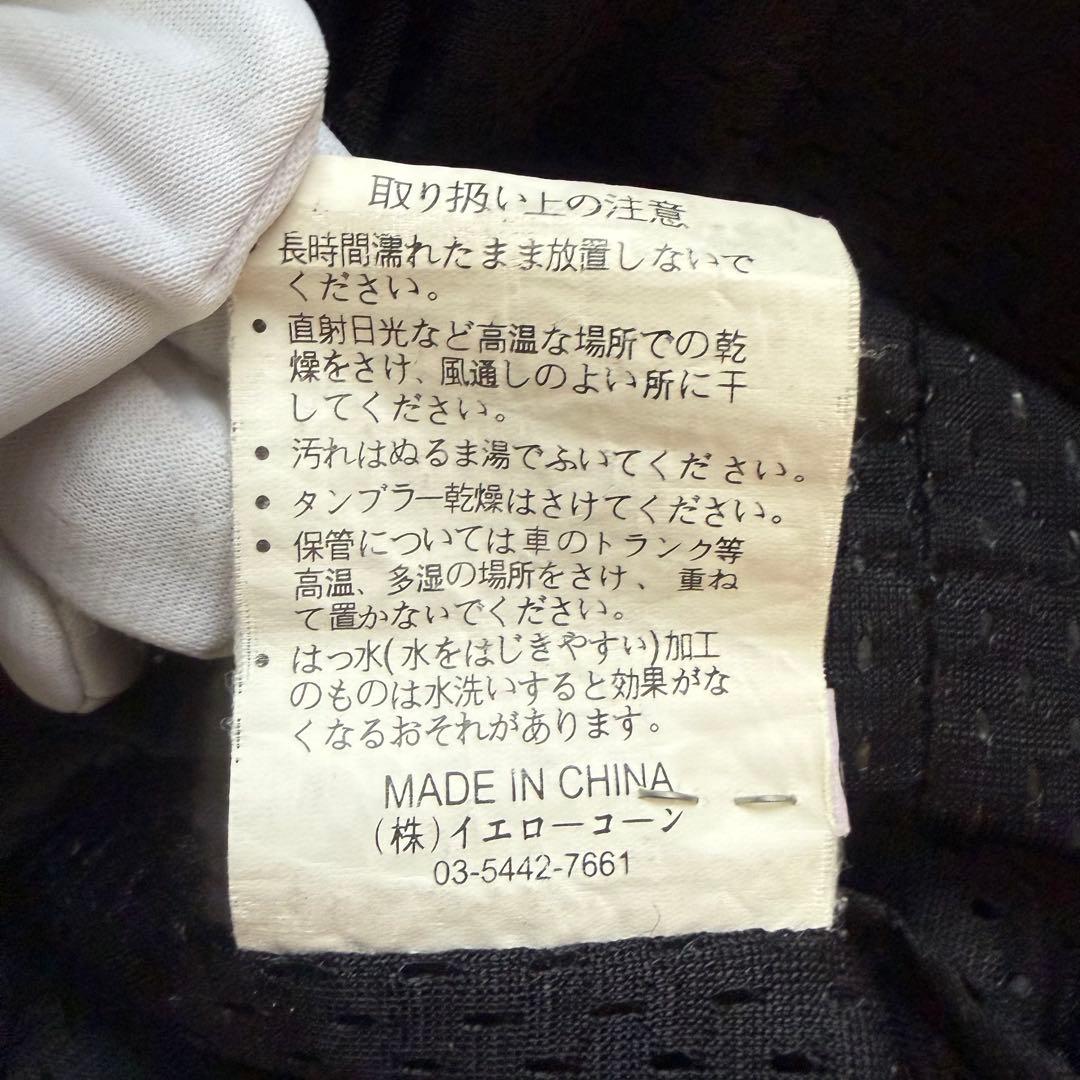 取り扱い上の注意
長時間濡れたまま放置しないで
ください。
• 直射日光など高温な場所での乾
燥をさけ、風通しのよい所に干
してください。
• 汚れはぬるま湯でふいてください。
• タンブラー乾燥はさけてください。
• 保管については車のトランク等
高温、多湿の場所をさけ、重ね
て置かないでください。
• はっ水(水をはじきやすい)加工
のものは水洗いすると効果がな
くなるおそれがあります。
MADE IN CHINA
(株)イエローコーン
03-5442-7661